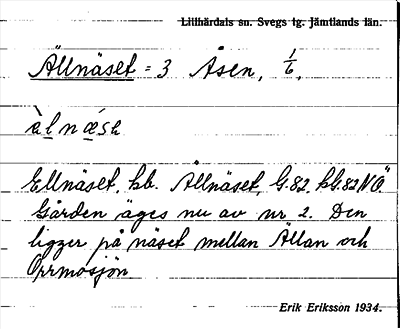 Lillhärdals sn. Svegs tg. Jämtlands län.
Ällnäset = 3 Åsen, 1/6.
Ellnäset, hb. Ällnäset, G.82, kG.82NO."
Gården äges nu av nr 2. Den
ligger på näset mellan Ällan och
Orrmosjön
Erik Eriksson 1934.